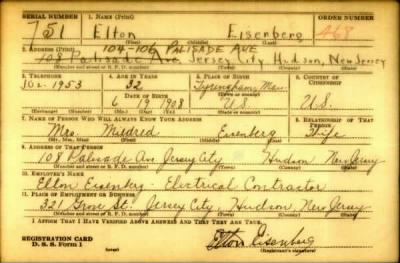 SERIAL NUMBER 1. NAME (Print) ORDER NUMBER
751 Elton Eisenberg 468
(First) (Middle) (Last)
2. ADDRESS (Print) 104-106 PALISADE AVE
108 Palisade Ave. Jersey City Hudson, New Jersey
(Number and street or R. F. D. number) (Town) (County) (State)
3. TELEPHONE 4. AGE IN YEARS 5. PLACE OF BIRTH 6. COUNTRY OF CITIZENSHIP
32 Tyringham, Mass.
(Town or county)
DATE OF BIRTH
6 19 1908 U.S. U.S.
(Exchange) (Number) (Mo.) (Day) (Yr.) (State or country)
7. NAME OF PERSON WHO WILL ALWAYS KNOW YOUR ADDRESS 8. RELATIONSHIP OF THAT PERSON
Mrs. Mildred Eisenberg Wife
(Mr., Mrs., Miss) (First) (Middle) (Last)
9. ADDRESS OF THAT PERSON
108 Palisade Ave. Jersey City Hudson New Jersey
(Number and street or R. F. D. number) (Town) (County) (State)
10. EMPLOYER'S NAME
Elton Eisenberg Electrical Contractor
11. PLACE OF EMPLOYMENT OR BUSINESS
321 Grove St. Jersey City, Hudson, New Jersey
(Number and street or R. F. D. number) (Town) (County) (State)
I AFFIRM THAT I HAVE VERIFIED ABOVE ANSWERS AND THAT THEY ARE TRUE.
REGISTRATION CARD
D. S. S. Form 1 Elton Eisenberg
(Registrant's signature)